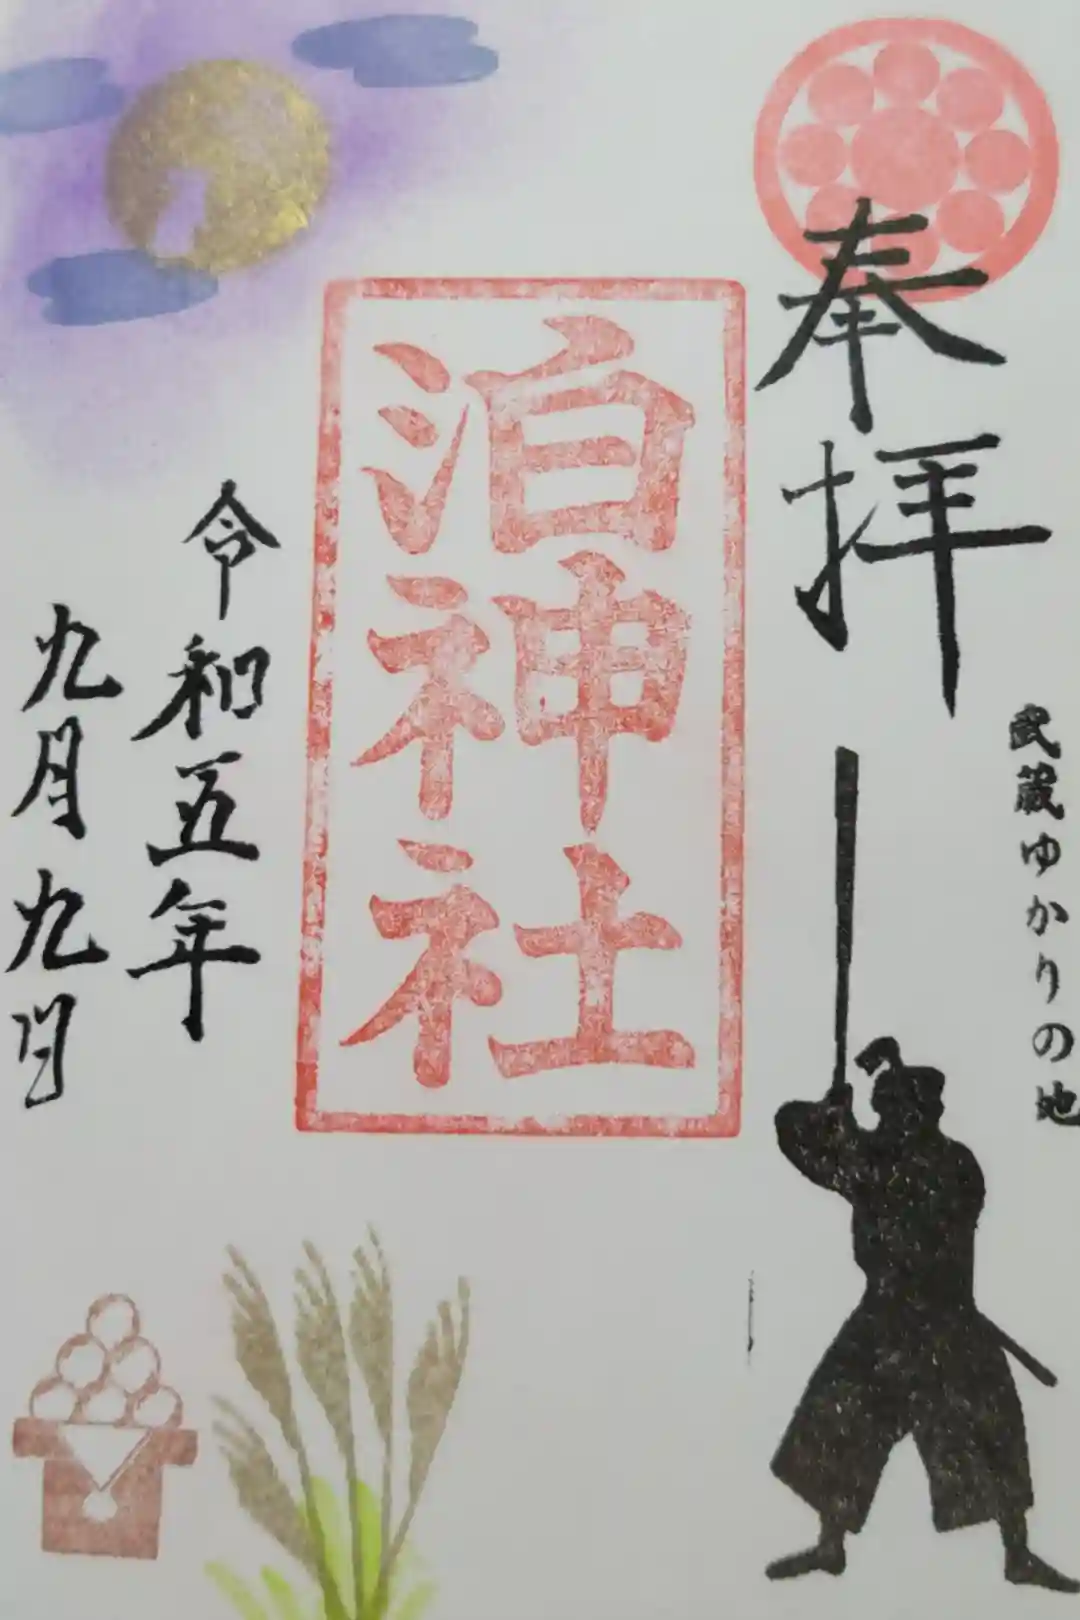 奉拝
武蔵ゆかりの地
泊神社
令和五年
九月九日